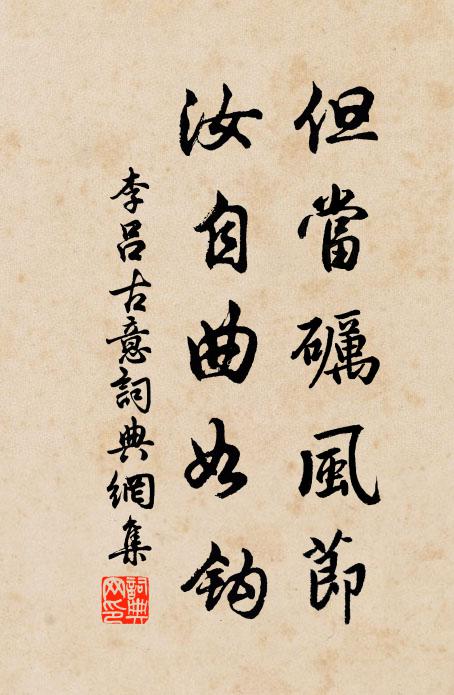 但當礪風節
汝自曲如鈎
李呂古意詞典網集
詞典网印